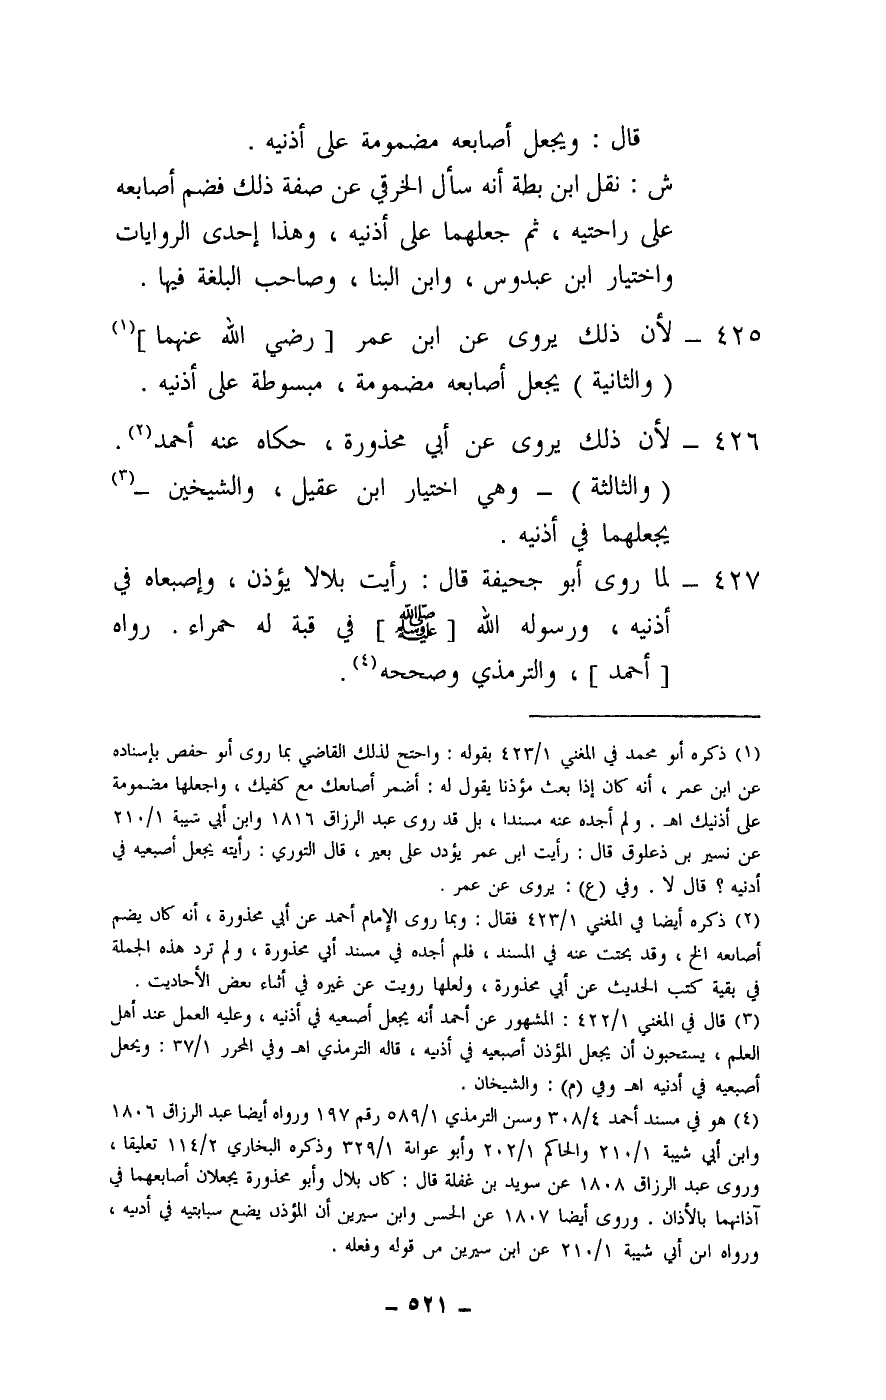 قال : ويجعل أصابعه مضمومة على أذنيه .
ش : نقل ابن بطة أنه سأل الخرقي عن صفة ذلك فضم أصابعه
على راحتيه ، ثم جعلهما على أذنيه ، وهذا إحدى الروايات
واختيار ابن عبدوس ، وابن البنا ، وصاحب البلغة فيها .
٤٢٥ – لأن ذلك يروى عن ابن عمر [ رضي الله عنهما ](١)
( والثانية ) يجعل أصابعه مضمومة ، مبسوطة على أذنيه .
٤٢٦ – لأن ذلك يروى عن أبي محذورة ، حكاه عنه أحمد(٢) .
( والثالثة ) – وهي اختيار ابن عقيل ، والشيخين –(٣)
يجعلهما في أذنيه .
٤٢٧ – لما روى أبو جحيفة قال : رأيت بلالا يؤذن ، وإصبعاه في
أذنيه ، ورسوله الله [ ﷺ ] في قبة له حمراء . رواه
[ أحمد ] ، والترمذي وصححه(٤) .
(١) ذكره أبو محمد في المغني ٤٢٣/١ بقوله : واحتج لذلك القاضي بما روى أبو حفص بإسناده
عن ابن عمر ، أنه كان إذا بعث مؤذنا يقول له : أضمر أصابعك مع كفيك ، واجعلها مضمومة
على أذنيك اهـ . ولم أجده عنه مسندا ، بل قد روى عبد الرزاق ١٨١٦ وابن أبي شيبة ٢١٠/١
عن نسير بن ذعلوق قال : رأيت ابن عمر يؤذن على بعير ، قال الثوري : رأيته يجعل أصبعيه في
أذنيه ؟ قال لا . وفي (ع) : يروى عن عمر .
(٢) ذكره أيضا في المغني ٤٢٣/١ فقال : وبما روى الإمام أحمد عن أبي محذورة ، أنه كان يضم
أصابعه الخ ، وقد بحثت عنه في المسند ، فلم أجده في مسند أبي محذورة ، ولم ترد هذه الجملة
في بقية كتب الحديث عن أبي محذورة ، ولعلها رويت عن غيره في أثناء بعض الأحاديث .
(٣) قال في المغني ٤٢٢/١ : المشهور عن أحمد أنه يجعل أصبعيه في أذنيه ، وعليه العمل عند أهل
العلم ، يستحبون أن يجعل المؤذن أصبعيه في أذنيه ، قاله الترمذي اهـ وفي المحرر ٣٧/١ : ويجعل
أصبعيه في أذنيه اهـ وفي (م) : والشيخان .
(٤) هو في مسند أحمد ٣٠٨/٤ وسنن الترمذي ٥٨٩/١ رقم ١٩٧ ورواه أيضا عبد الرزاق ١٨٠٦
وابن أبي شيبة ٢١٠/١ والحاكم ٢٠٢/١ وأبو عوانة ٣٢٩/١ وذكره البخاري ١١٤/٢ تعليقا ،
وروى عبد الرزاق ١٨٠٨ عن سويد بن غفلة قال : كان بلال وأبو محذورة يجعلان أصابعهما في
آذانهما بالأذان . وروى أيضا ١٨٠٧ عن الحسن وابن سيرين أن المؤذن يضع سبابتيه في أذنيه ،
ورواه ابن أبي شيبة ٢١٠/١ عن ابن سيرين من قوله وفعله .
– ٥٢١ –